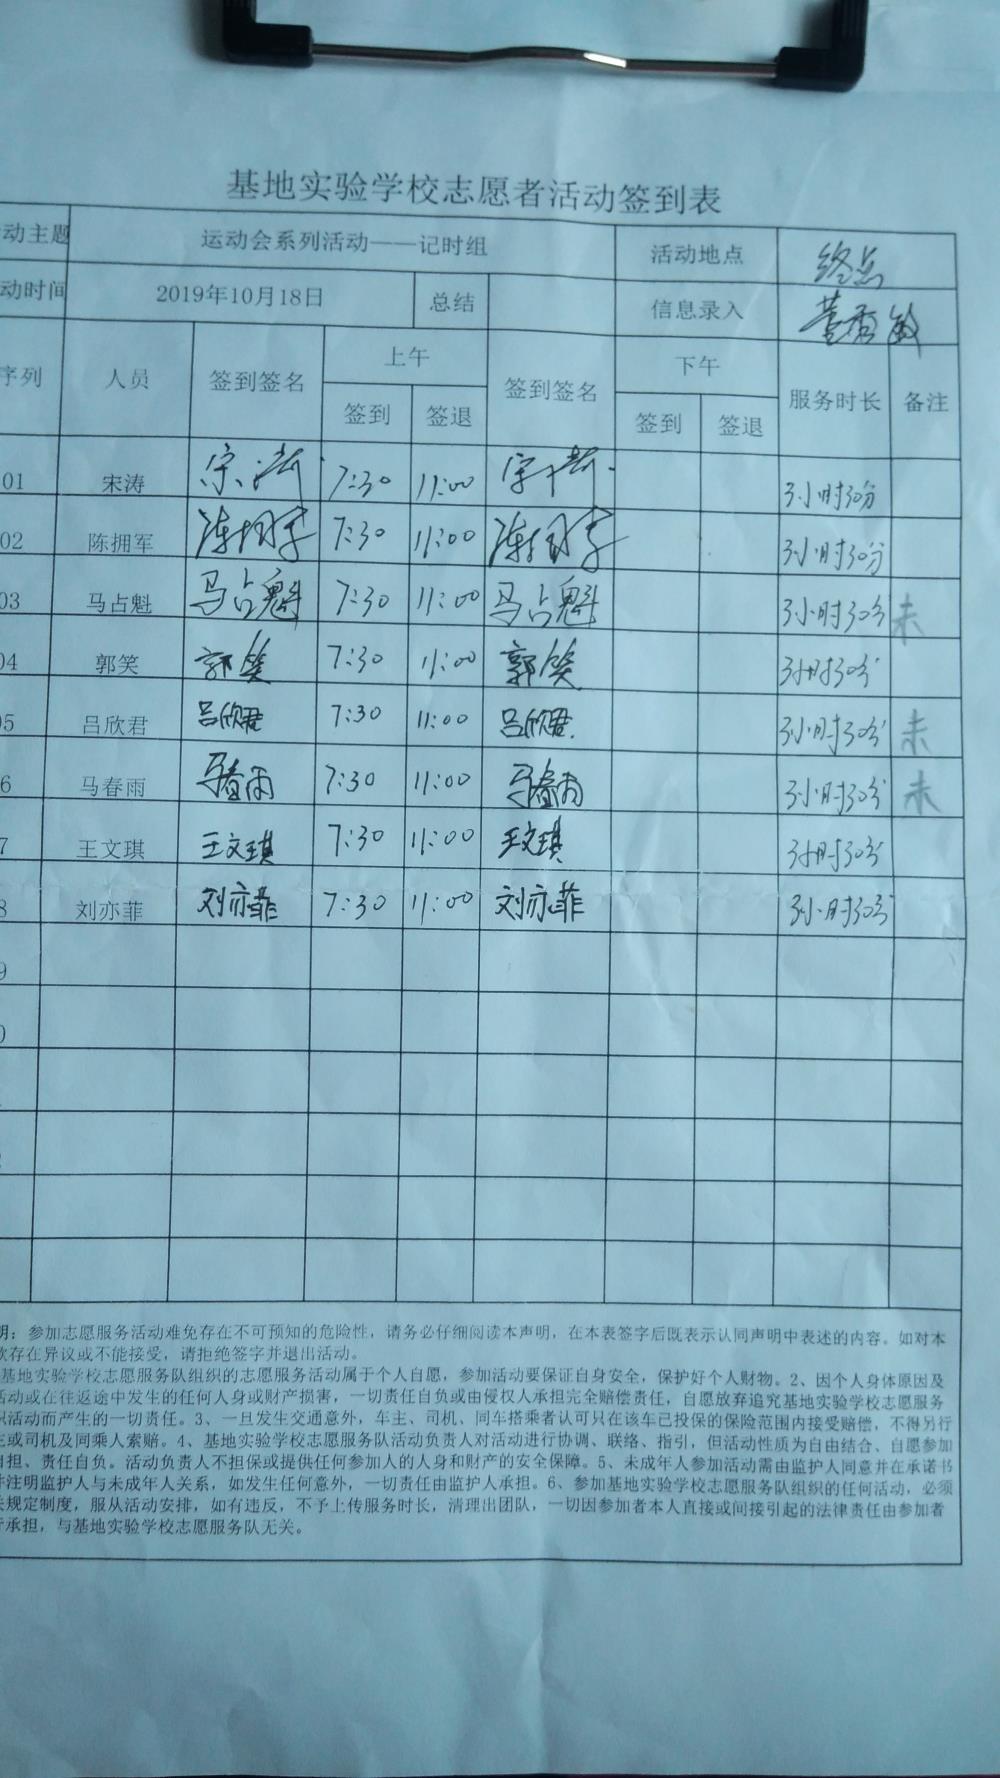 基地实验学校志愿者活动签到表
动主题 运动会系列活动——记时组 活动地点 终点
动时间 2019年10月18日 总结 信息录入 董香敏
序列 人员 签到签名 上午 签到签名 下午 服务时长 备注
签到 签退 签到 签退
01 宋涛 宋涛 7:30 11:00 宋涛 3小时30分
02 陈拥军 陈拥军 7:30 11:00 陈拥军 3小时30分
03 马占魁 马占魁 7:30 11:00 马占魁 3小时30分 未
04 郭笑 郭笑 7:30 11:00 郭笑 3小时30分
5 吕欣君 吕欣君 7:30 11:00 吕欣君. 3小时30分 未
6 马春雨 马春雨 7:30 11:00 马春雨 3小时30分 未
7 王文琪 王文琪 7:30 11:00 王文琪 3小时30分
8 刘亦菲 刘亦菲 7:30 11:00 刘亦菲 3小时30分
9
0
明：参加志愿服务活动难免存在不可预知的危险性，请务必仔细阅读本声明，在本表签字后既表示认同声明中表述的内容。如对本
款存在异议或不能接受，请拒绝签字并退出活动。
基地实验学校志愿服务队组织的志愿服务活动属于个人自愿，参加活动要保证自身安全，保护好个人财物。2、因个人身体原因及
活动或在往返途中发生的任何人身或财产损害，一切责任自负或由侵权人承担完全赔偿责任，自愿放弃追究基地实验学校志愿服务
织活动而产生的一切责任。3、一旦发生交通意外，车主、司机、同车搭乘者认可只在该车已投保的保险范围内接受赔偿，不得另行
主或司机及同乘人索赔。4、基地实验学校志愿服务队活动负责人对活动进行协调、联络、指引，但活动性质为自由结合、自愿参加
自担、责任自负。活动负责人不担保或提供任何参加人的人身和财产的安全保障。5、未成年人参加活动需由监护人同意并在承诺书
并注明监护人与未成年人关系，如发生任何意外，一切责任由监护人承担。6、参加基地实验学校志愿服务队组织的任何活动，必须
关规定制度，服从活动安排，如有违反，不予上传服务时长，清理出团队，一切因参加者本人直接或间接引起的法律责任由参加者
行承担，与基地实验学校志愿服务队无关。